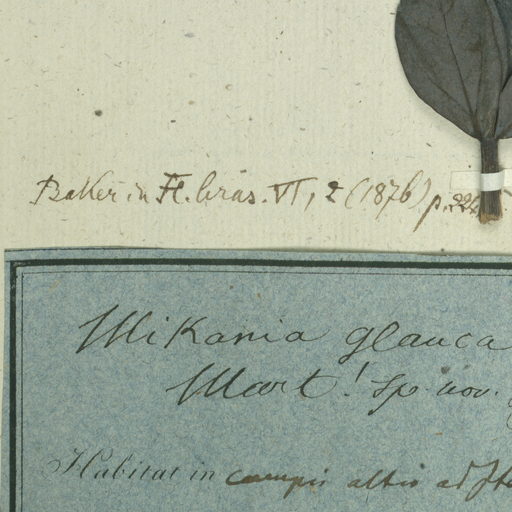 Baker in Fl. bras. VI, 2 (1876) p. 224
Mikania glauca
Mart! Sp. nov.
Habitat in campis altis ad